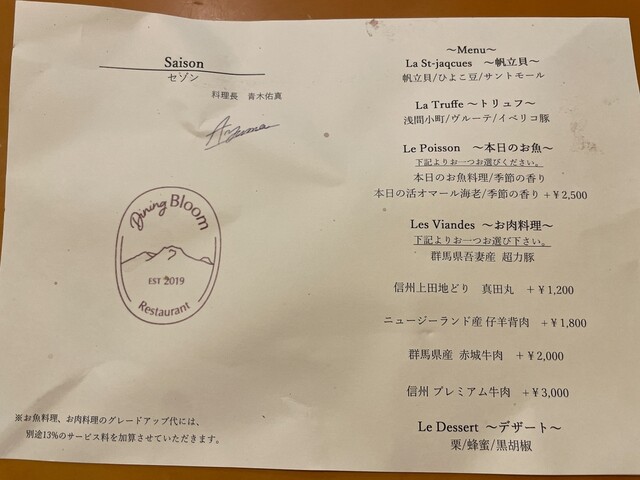 Saison
セゾン
料理長　青木佑真
Dining Bloom
EST 2019
Restaurant
※お魚料理、お肉料理のグレードアップ代には、
別途13%のサービス料を加算させていただきます。
～Menu～
La St-jaqcues　～帆立貝～
帆立貝/ひよこ豆/サントモール
La Truffe ～トリュフ～
浅間小町/ヴルーテ/イベリコ豚
Le Poisson　～本日のお魚～
下記よりお一つお選びください。
本日のお魚料理/季節の香り
本日の活オマール海老/季節の香り +￥2,500
Les Viandes　～お肉料理～
下記よりお一つお選び下さい。
群馬県吾妻産 超力豚
信州上田地どり　真田丸　+￥1,200
ニュージーランド産 仔羊背肉　+￥1,800
群馬県産 赤城牛肉　+￥2,000
信州 プレミアム牛肉　+￥3,000
Le Dessert　～デザート～
栗/蜂蜜/黒胡椒